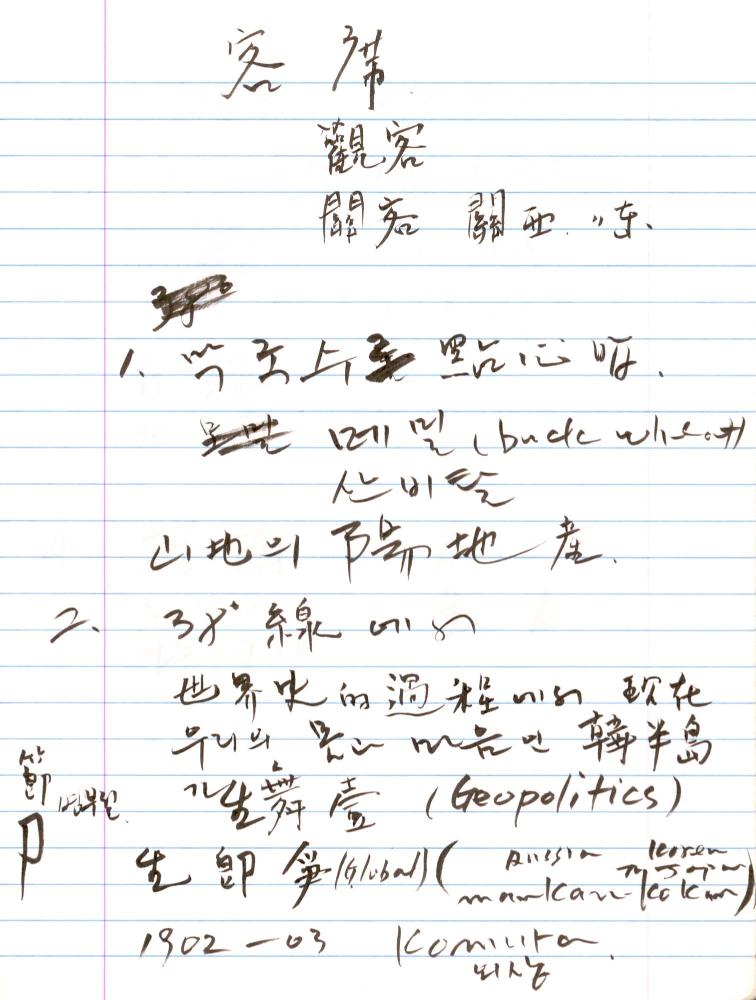 客席
觀客
關客 關西 〃东.
1. 막국수 點心 때.
메밀 (buck wheat)
산비탈
山地의 陽地 産.
2. 38°線에서
世界史的 過程에서 現在
우리의 몸과 마음인 韓半島
가 生舞臺 (Geopolitics)
節
卩
生 即 爭 (Global) (Russia Korea Japan
mankan - Kokan)
1902 - 03 Komura.
외상